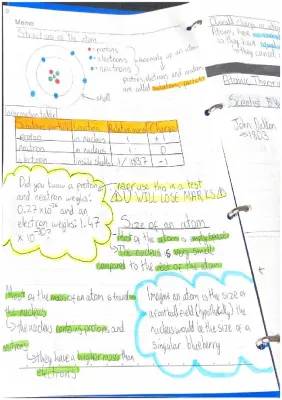 Memo
Structure of the atom
• protons
• electrons
• neutrons
makeup up an atom
protons, electrons and neutrons
are called subatomic particles
shell
Subatomic particle Location Relative mass Charge
proton in nucleus 1 +1
neutron in nucleus 1 0
electron inside shells 1/1837 -1
Did you know a proton
and neutron weighs:
and an
electron weighs:
never use this in a test
U WILL LOSE MARKS
Size of an atom
Most of the atom is empty space
the nucleus is very small
compared to the rest of the atom
Most of the mass of an atom is found in
the nucleus
the nucleus contains protons and
neutrons
they have a higher mass than
electrons
Imagine an atom is the size of
a football field (hypothetically) the
nucleus would be the size of a
singular blueberry
Overall charge
Atoms have
they have
they cancel
Atomic Theory
Scientist
John Dalton
1803